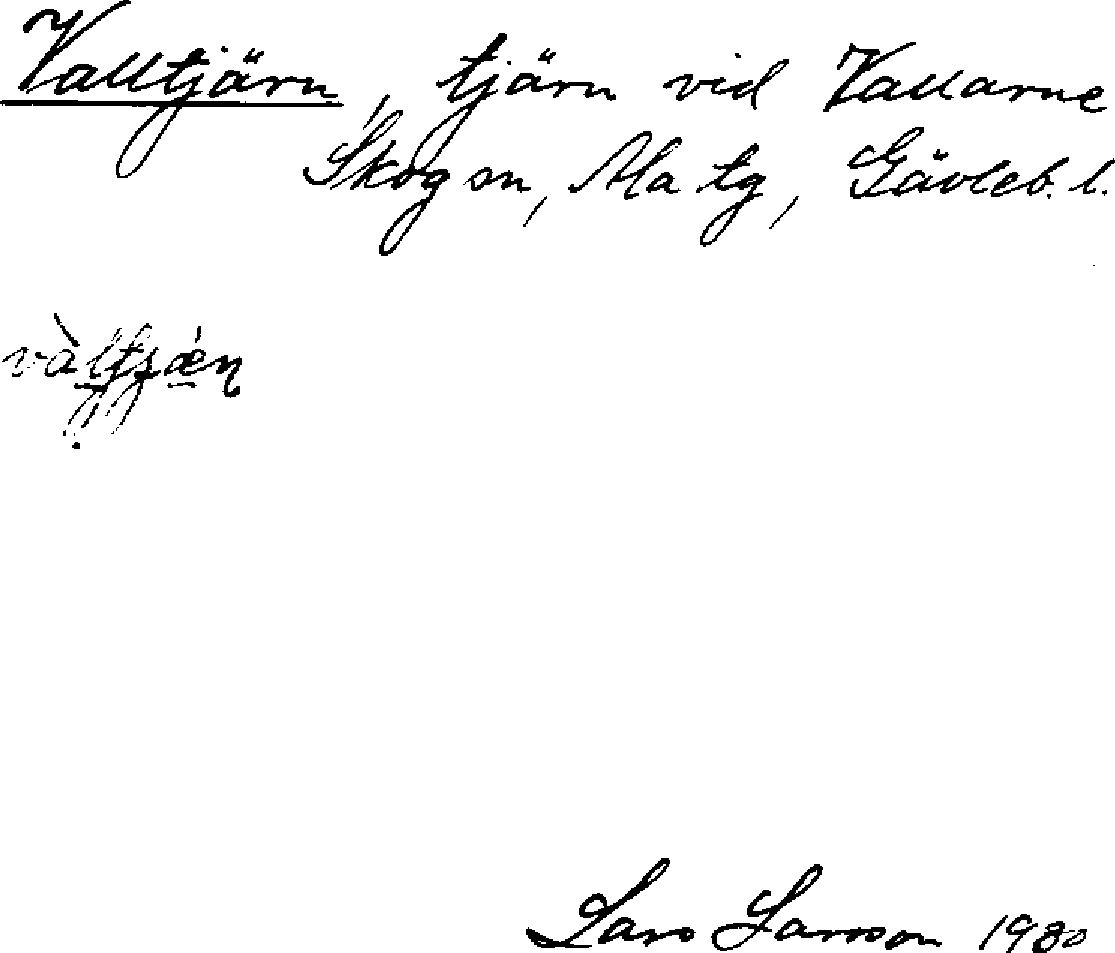 Valltjärn, tjärn vid Vallarne
Skog sn, Ala tg, Gävleb. l.
Lars Larsson 1980